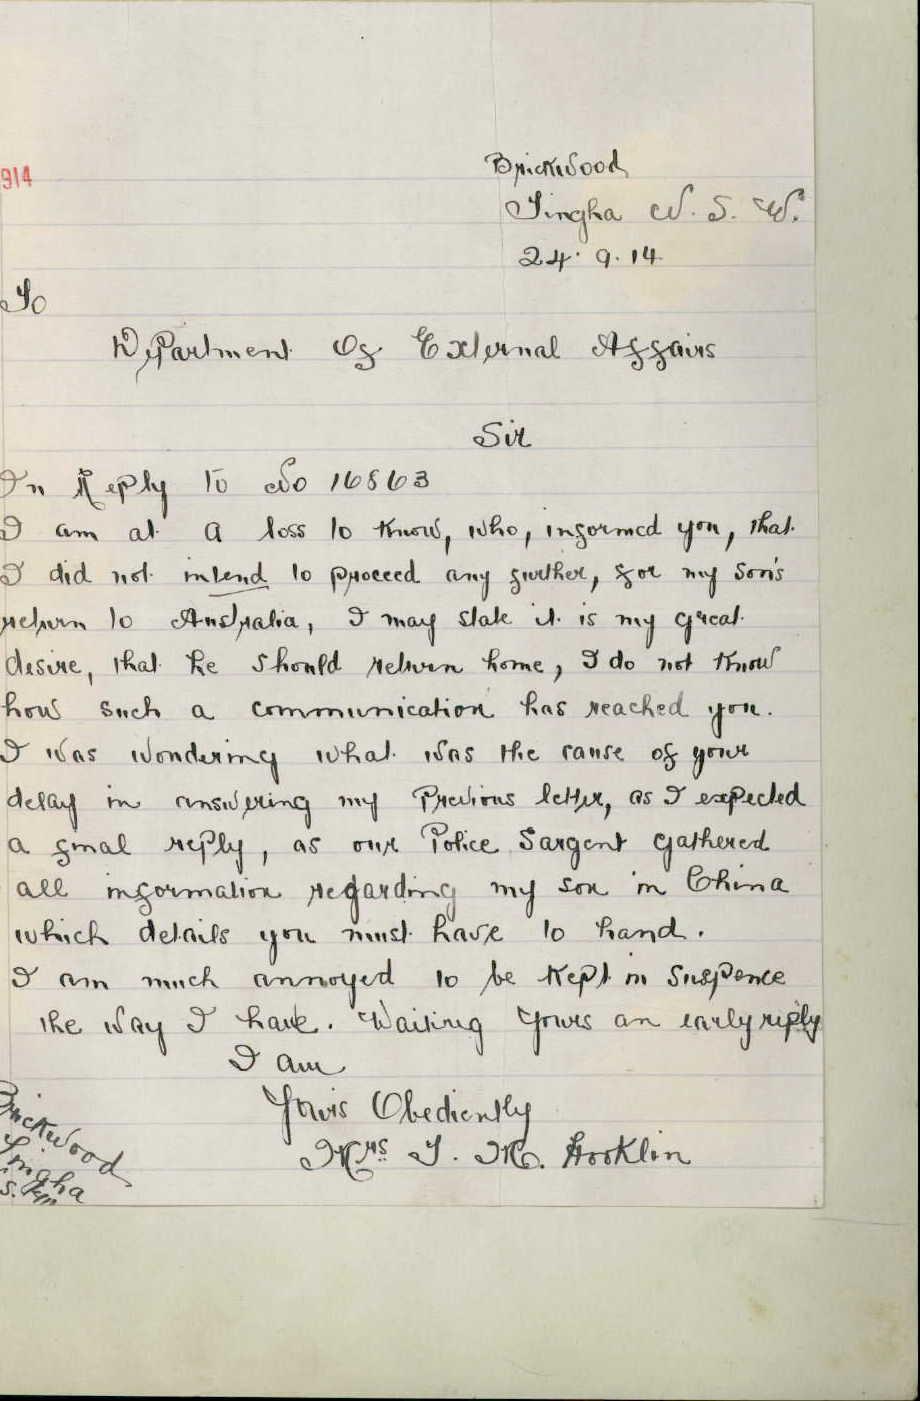 914
Brickwood
Tingha N. S. W.
24. 9. 14
To
Department Of External Affairs
Sir
In Reply to No 16863
I am at a loss to know, who, informed you, that
I did not intend to proceed any further, for my son's
return to Australia, I may state it is my great
desire, that he should return home, I do not know
how such a communication has reached you.
I was wondering what was the cause of your
delay in answering my Previous letter, as I expected
a final reply, as our Police Sargent gathered
all information regarding my son in China
which details you must have to hand.
I am much annoyed to be kept in suspence
the way I have. Waiting Yours an early reply
I am
Yours Obediently
Mrs T. M. Hooklin
Brickwood
Tingha